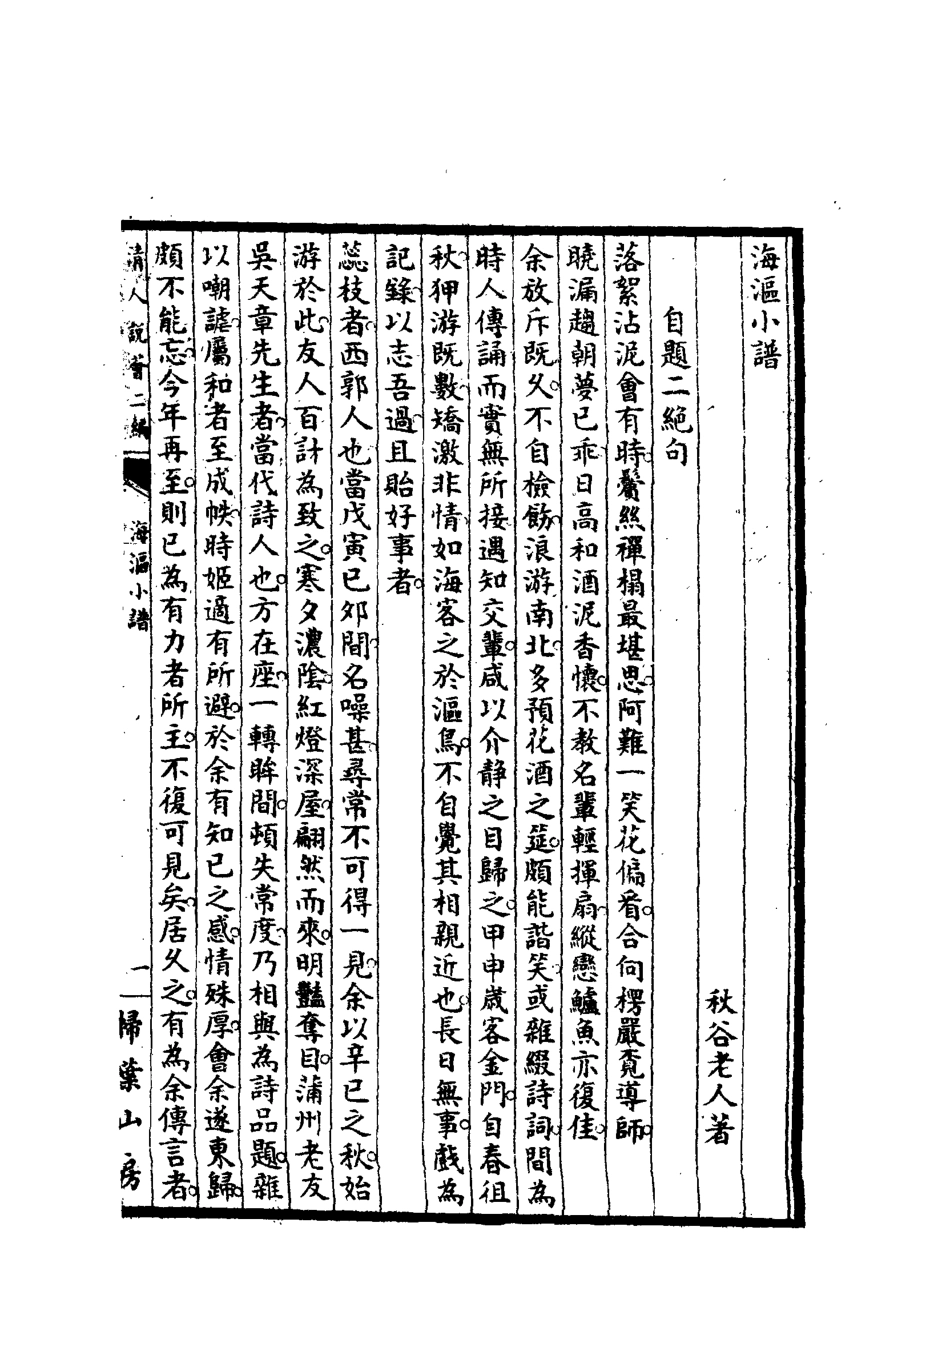 海漚小譜
秋谷老人著
自題二絶句
落絮沾泥會有時。鬢絲禪榻最堪思。阿難一笑花偏看。合向楞嚴覔導師。
曉漏趨朝夢已乖。日高和酒泥香懷。不教名輩輕揮扇。縱戀鱸魚亦復佳。
余放斥既久。不自檢飭。浪游南北。多預花酒之筵。頗能諧笑。或雜綴詩詞。間為
時人傳誦。而實無所接遇。知交輩咸以介靜之目歸之。甲申歲客金門。自春徂
秋。狎游既數。矯激非情。如海客之於漚鳥。不自覺其相親近也。長日無事。戲為
記錄。以志吾過。且貽好事者。
蕊枝者。西郭人也。當戊寅已夘間。名噪甚。尋常不可得一見。余以辛已之秋。始
游於此。友人百計為致之。寒夕濃陰。紅燈深屋。翩然而來。明豔奪目。蒲州老友
吳天章先生者。當代詩人也。方在座。一轉眸間。頓失常度。乃相與為詩品題。雜
以嘲謔。屬和者至成帙。時姬適有所避。於余有知已之感。情殊厚。會余遂東歸。
頗不能忘。今年再至。則已為有力者所主。不復可見矣。居久之。有為余傳言者。
清人說薈二編
海漚小譜
一
掃葉山房